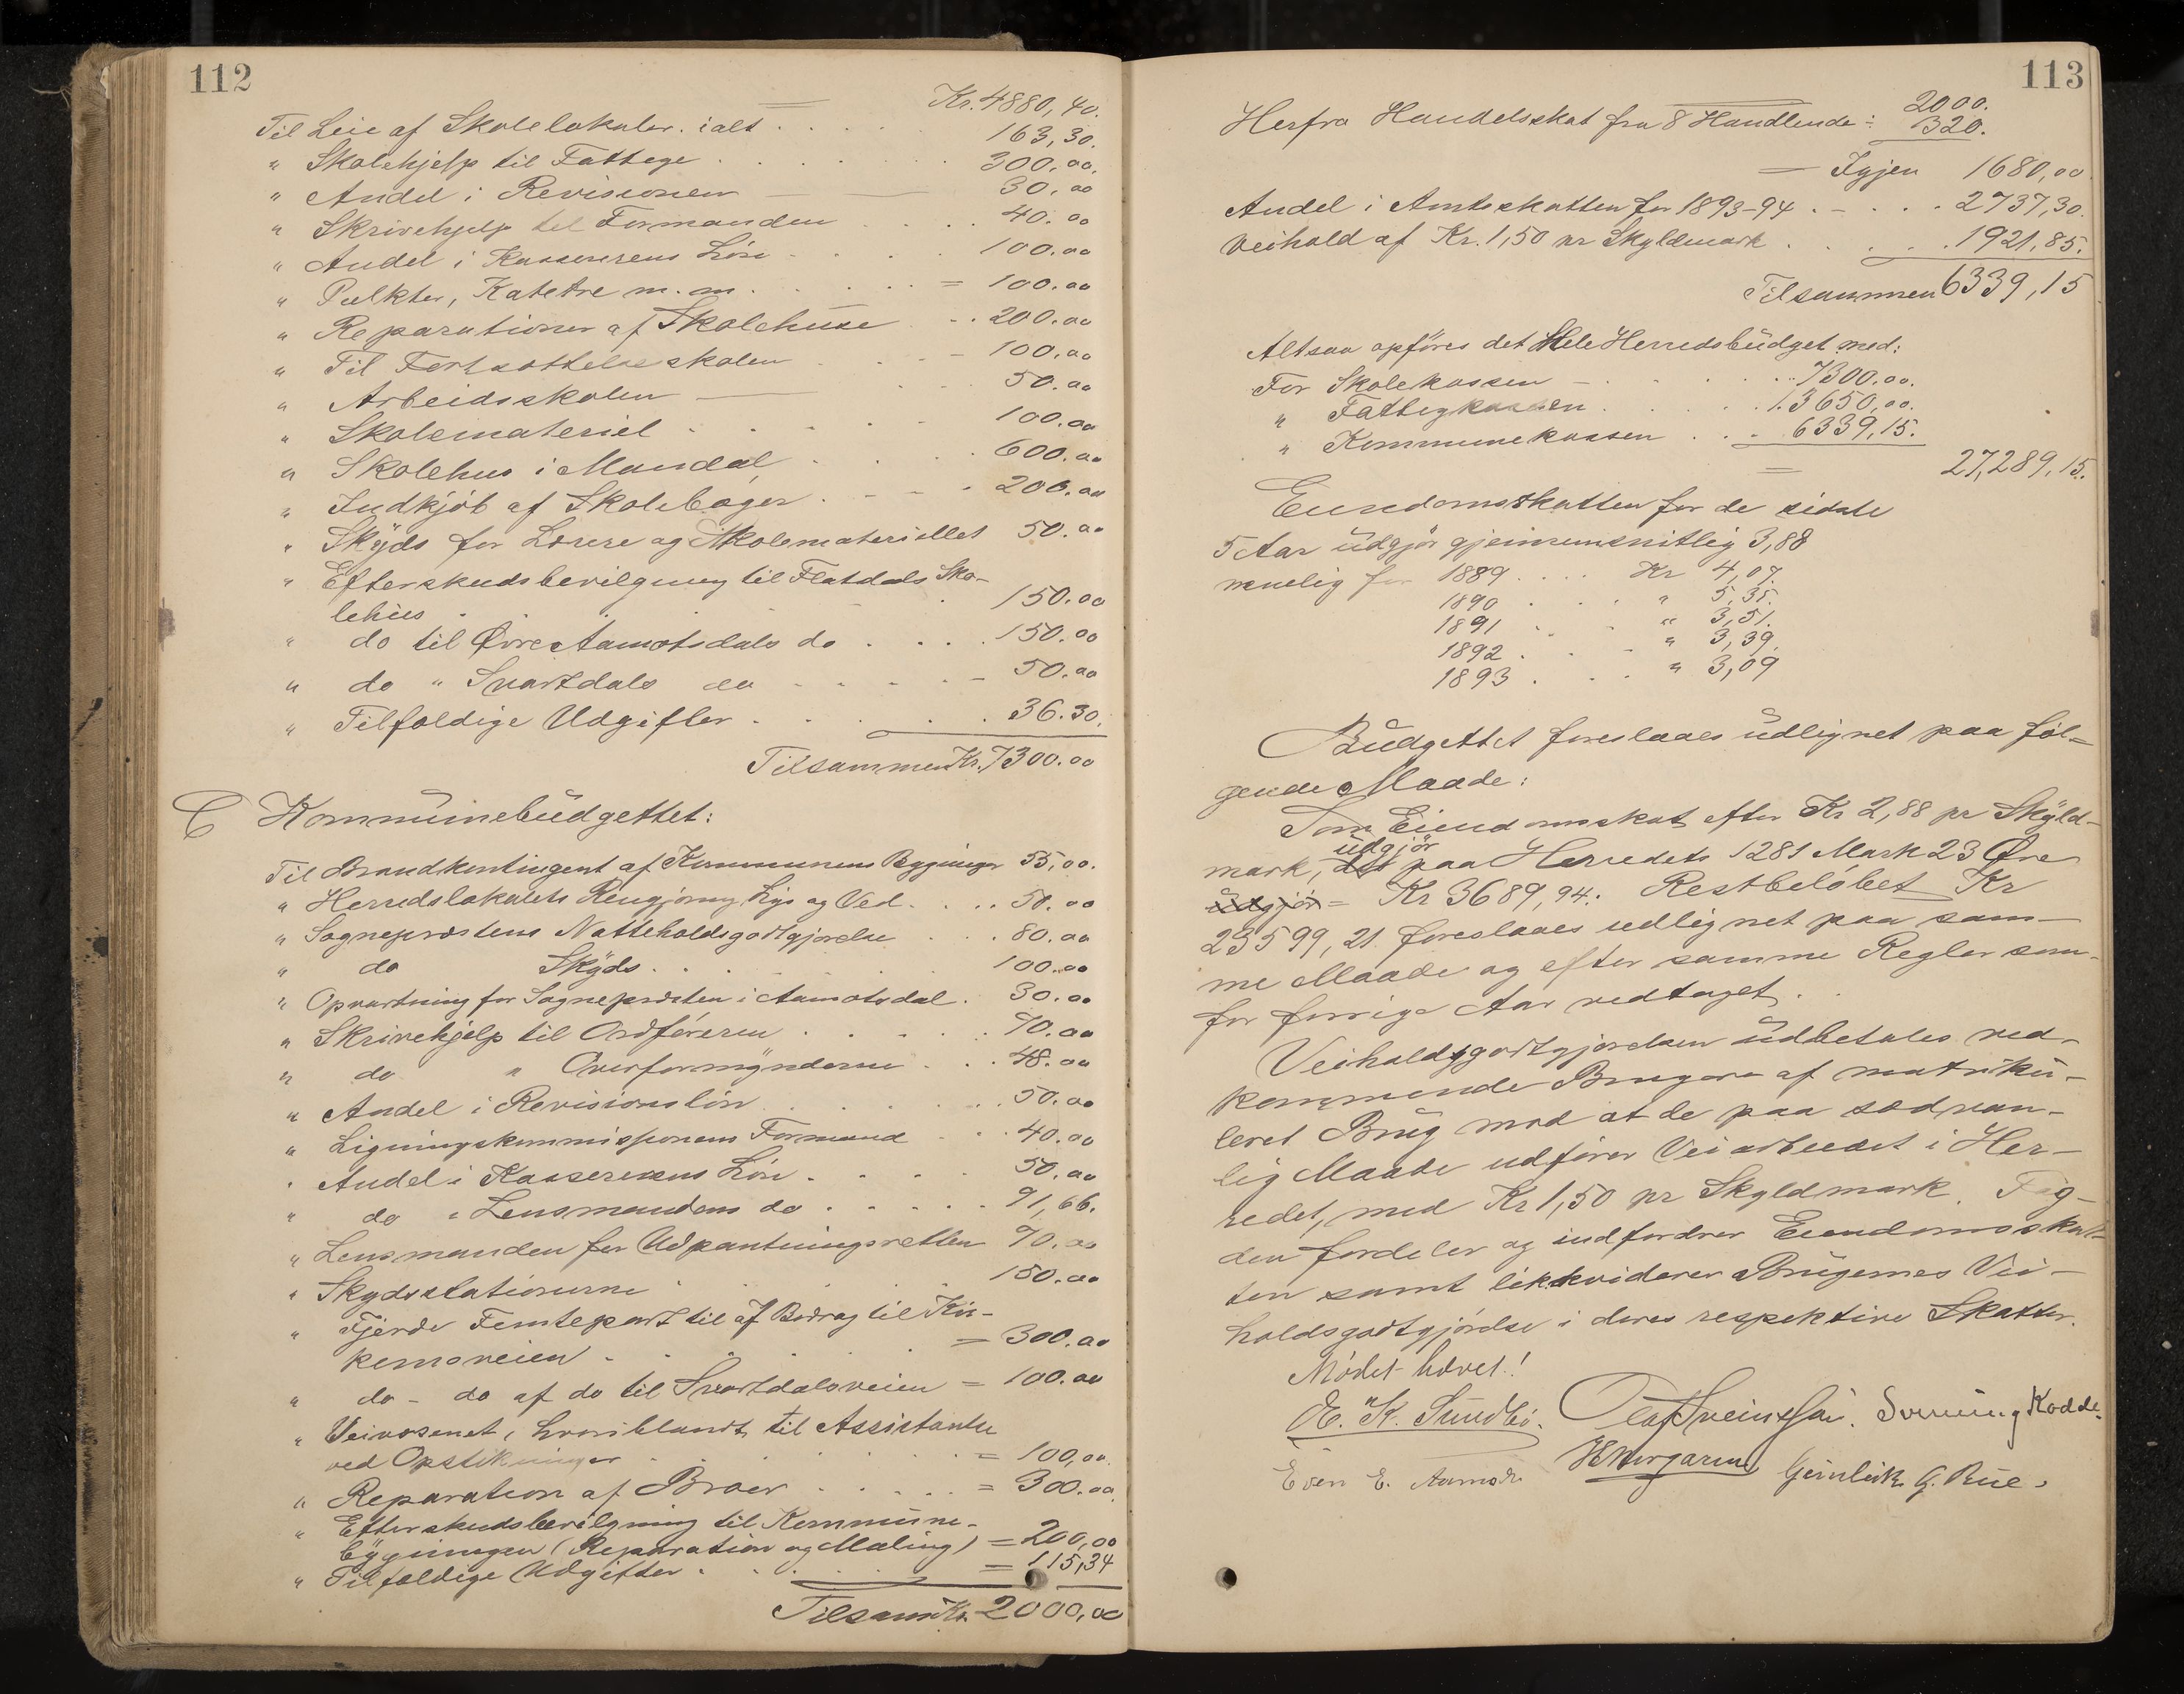 112
Kr. 4880,40.
Til Leie af Skolelokaler. ialt 163,30.
" Skolehjelp til Fattige 300.00.
" Andel i Revisionen 30.00
" Skrivehjelp til Formanden 40.00
" Andel i Kassererens Løn 100.00
" Pulkter, Kathetre m. m. = 100.00
" Reparationer af Skolehuse 200.00
" Til Fortsættelsesskolen 100.00
" Arbeidsskolen 50.00
" Skolemateriel 100.00
" Skolehus i Mandal 600.00
" Indkjöb af Skolebøger 200.00
" Skyds for Lærere og Skolematerillet 50.00
" Efterskudsbevilgning til Flatdals Sko-
lehus 150.00
" do til Øvre Aamotsdals do 150.00
" do " Svartdals do 50.00
" Tilfældige Udgifter 36.30.
Tilsammen Kr. 7300.00
C Kommunebudgettet:
Til Brandkontingent af Kommunens Bygninger 55,00.
" Herredslokalets Rengjøring, Lys og Ved 50.00
" Sogneprestens Natteholdsgodtgjørelse 80.00
" do Skyds 100.00
" Opvartning for Sognepresten i Aamotsdal 30.00
" Skrivehjelp til Ordføreren 70.00
" do " Overformynderne 48.00
" Andel i Revisionsløn 50.00
" Ligningskommissionens Formand 40.00
" Andel i Kassererens Løn 50.00
" do " Lensmandens do 91,66.
" Lensmanden for Udpantningsretten 70.00
" Skydsstationerne 150.00
" Fjerde Femtepart til af Bidrag til Kir-
kemoveien = 300.00
" do - do af do til Svartdalsveien = 100.00
" Veivæsenet, hvoriblandt til Assistante
ved Opstikninger = 100,00.
" Reparation af Broer = 300.00.
" Efterskudsbevilgning til Kommune-
bygningen (Reparation og Maling) = 200,00
" Tilfældige Udgifter = 115,34
Tilsam Kr. 2000,00
113
2000.
Herfra Handelsskat fra 8 Handlende ÷ 320.
Igjen 1680,00
Andel i Amtsskatten for 1893-94 2737,30.
Veihold af Kr. 1,50 pr Skyldmark 1921,85.
Tilsammen 6339,15
Altsaa opføres det Hele Herredsbudget med:
For Skolekassen 7300.00.
" Fattigkassen 13650,00.
" Kommunekassen 6339,15.
27,289,15.
Eiendomsskatten for de sidste
5 Aar udgjør gjennemsnitlig 3,88
nemlig for 1889 Kr 4,07.
1890 " 5,35.
1891 " 3,51.
1892 " 3,39.
1893 " 3,09
Budgettet foreslaaes udlignet paa føl-
gende Maade:
Som Eiendomsskat efter Kr 2,88 pr Skyld-
udgjør
mark, det paa Herredets 1281 Mark 23 Øre
udgjør = Kr 3689,94. Restbeløbet Kr
23599,21 foreslaaes udlignet paa sam-
me Maade og efter samme Regler som
for forrige Aar vedtaget.
Veiholdsgodtgjørelsen udbetales ved-
kommende Brugere af matriku-
leret Brug mod at de paa sædvan-
lig Maade udfører Veiarbeidet i Her-
redet, med Kr 1,50 pr Skyldmark. Fog-
den fordeler og indfordrer Eiendomsskat-
ten samt likkviderer Brugernes Vei-
holdsgodtgjørelse i deres respektive Skatter.
Mødet hævet!
E. K. Sundbö. Olaf Sveinsson. Sveinung Kodde.
Even E. Aamodt. Geirulv G. Rue.